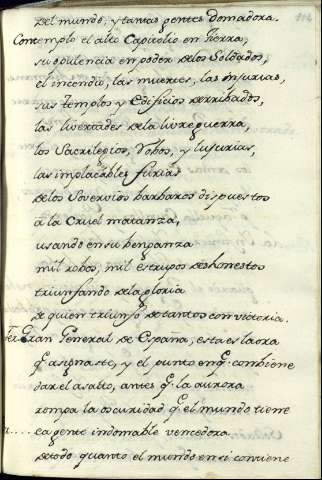 del mundo, y tantas gentes Domadora.
Contemplo el alto Capitolio en tierra,
su opulencia en poder de los Soldados,
el incendio, las muertes, las injurias,
sus templos y Edificios derribados,
las libertades de la libre guerra,
los Sacrilegios, Robos, y lujurias,
las implacables furias
de los Sovervios barbaros dispuestos
a la Cruel matanza,
usando en su benganza
mil robos, mil estupos deshonestos
triunfando de la gloria
de quien triunfo de tantos con victoria.
Ter. Gran General de España, esta es la ora
q.e asignaste, y el punto en q.e combiene
dar el asalto, antes q.e la aurora
rompa la oscuridad q.e el mundo tiene
ea gente indomable vencedora
de todo quanto el mundo en si contiene